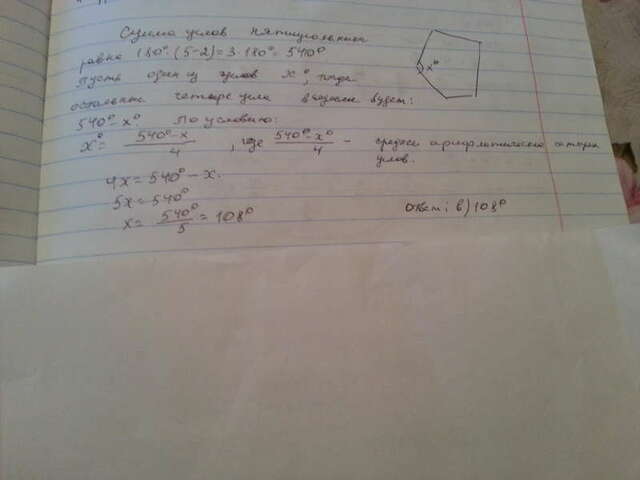 Сумма углов пятиугольника
равна 180°·(5-2)=3·180°=540°
Пусть один из углов x°, тогда
остальные четыре угла в сумме будет:
540°-x° По условию:
x°= 540°-x / 4 , где 540°-x° / 4 - среднее арифметическое
углов.
4x=540°-x.
5x=540°
x= 540° / 5 = 108°
Ответ: в) 108°
x°